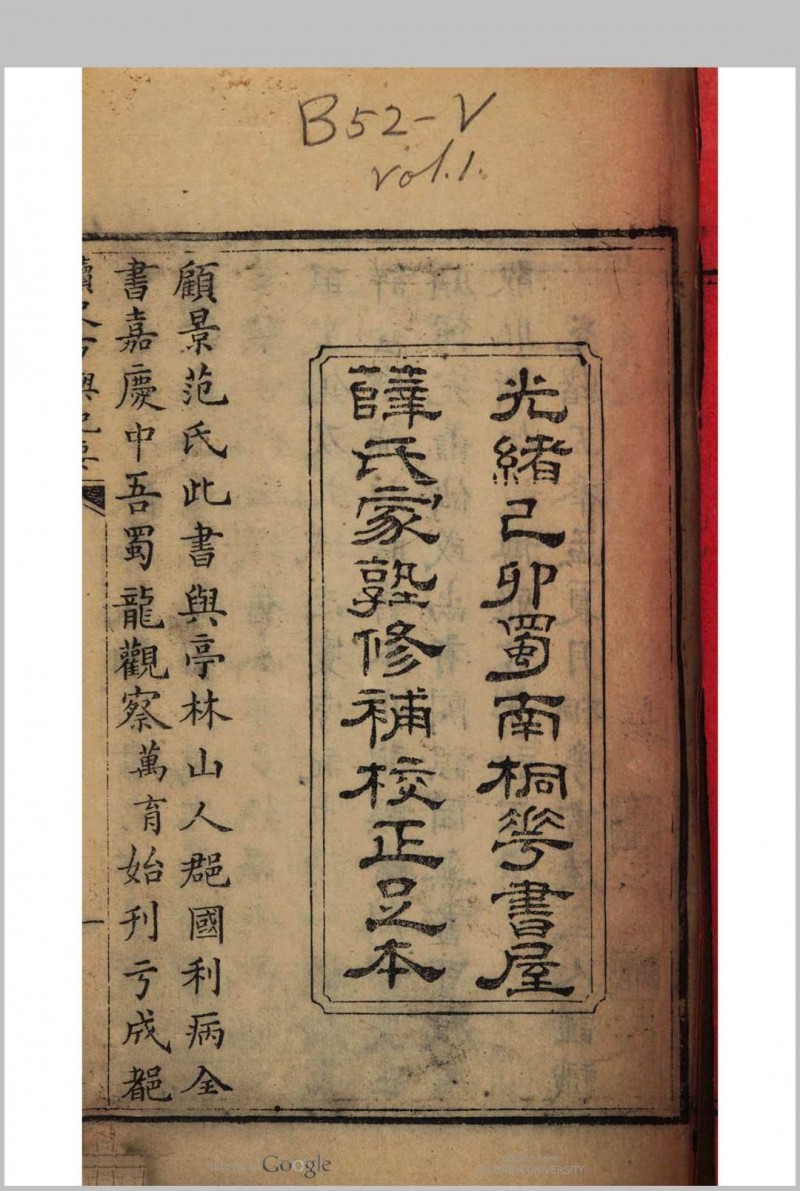 B52-V
vol.1.
光緒己卯蜀南桐華書屋
薛氏家塾修補校正足本
顧景范氏此書與亭林山人郡國利病全
書嘉慶中吾蜀龍觀察萬育始刊亏成都
讀史方輿紀要
Google
UNIVERSITY